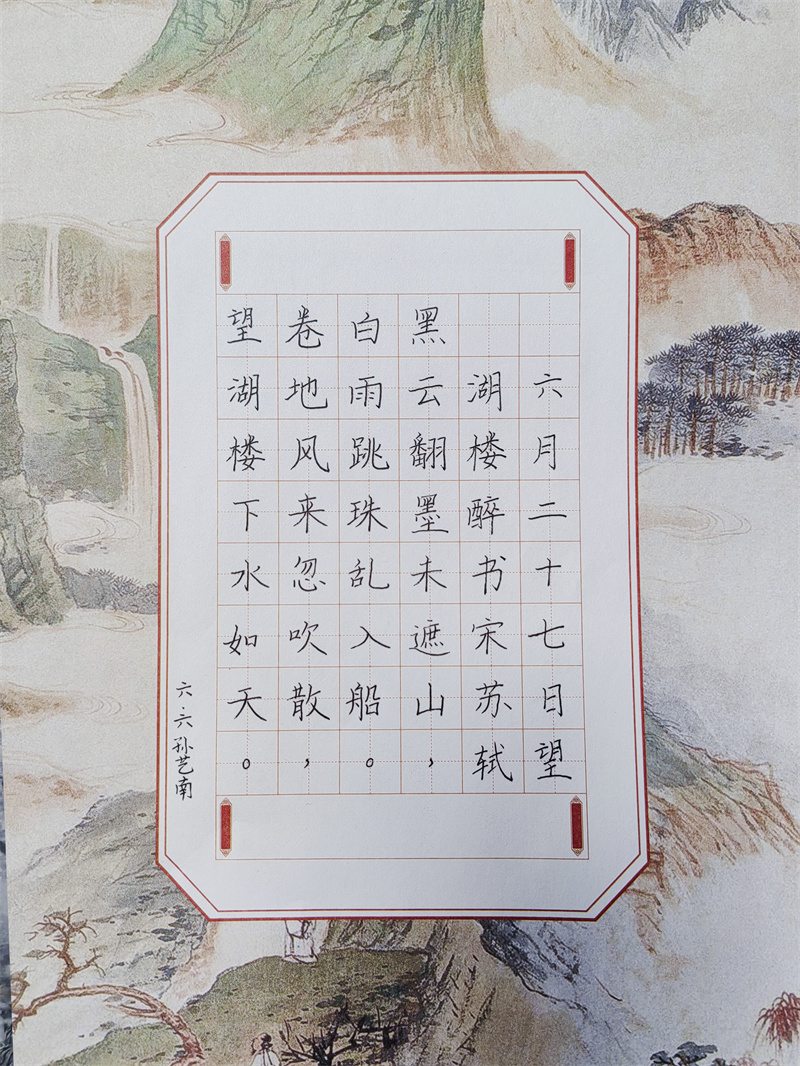 六月二十七日望
湖楼醉书宋苏轼
黑云翻墨未遮山，
白雨跳珠乱入船。
卷地风来忽吹散，
望湖楼下水如天。
六.六孙艺南